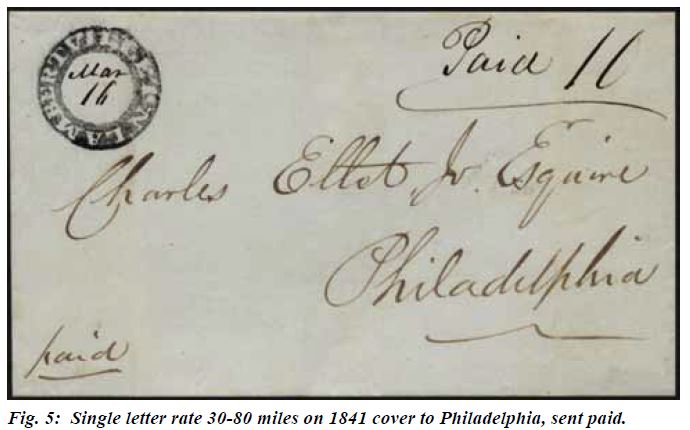 Mar
16
Paid 10
Charles Ellet, Jr. Esquire
Philadelphia
paid
Fig. 5: Single letter rate 30-80 miles on 1841 cover to Philadelphia, sent paid.